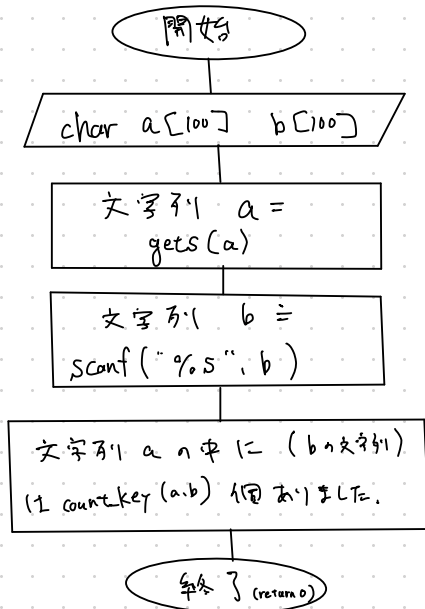 開始
char a[100] b[100]
文字列 a =
gets(a)
文字列 b =
scanf("%s", b)
文字列 a の中に (bの文字列)
は count_key(a,b) 個ありました.
終了 (return 0)